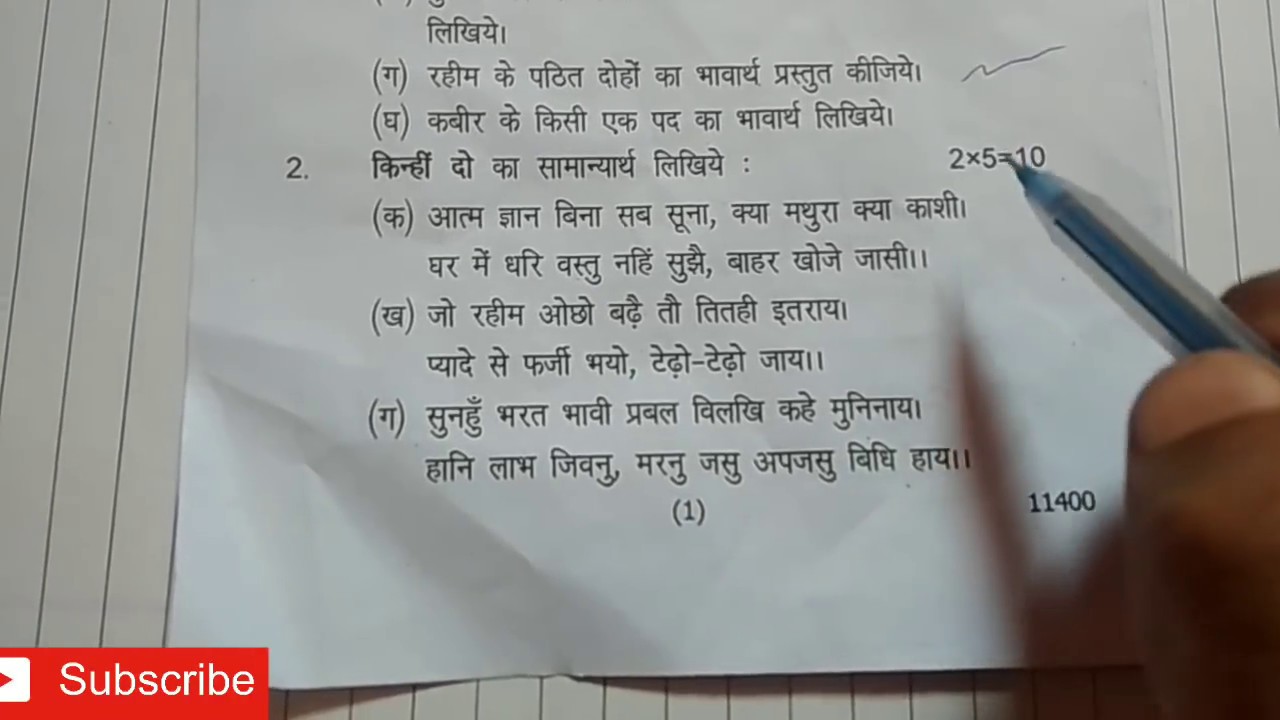 लिखिये।
(ग) रहीम के पठित दोहों का भावार्थ प्रस्तुत कीजिये।
(घ) कबीर के किसी एक पद का भावार्थ लिखिये।
2. किन्हीं दो का सामान्यार्थ लिखिये : 2×5=10
(क) आत्म ज्ञान बिना सब सूना, क्या मथुरा क्या काशी।
घर में धरि वस्तु नहिं सुझै, बाहर खोजे जासी।।
(ख) जो रहीम ओछो बढ़ै तौ तितही इतराय।
प्यादे से फर्जी भयो, टेढ़ो-टेढ़ो जाय।।
(ग) सुनहुँ भरत भावी प्रबल विलखि कहे मुनिनाय।
हानि लाभ जिवनु, मरनु जसु अपजसु बिधि हाय।।
(1)
11400
Subscribe